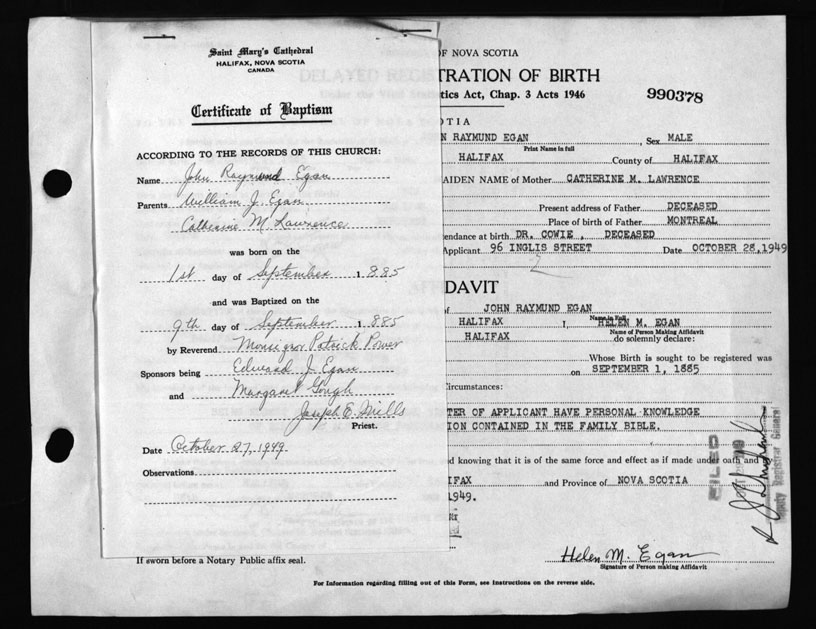 Saint Mary's Cathedral
HALIFAX, NOVA SCOTIA
CANADA
Certificate of Baptism
ACCORDING TO THE RECORDS OF THIS CHURCH:
Name John Raymund Egan
Parents William J. Egan
Catherine M Lawrence
was born on the
1st day of September 1885
and was Baptized on the
9th day of September 1885
by Reverend Monsignor Patrick Power
Sponsors being Edward J. Egan
and Margaret Gough
Joseph E. Mills
Priest.
Date October 27, 1949.
Observations
If sworn before a Notary Public affix seal.
OF NOVA SCOTIA
TRATION OF BIRTH
tics Act, Chap. 3 Acts 1946
990378
OTIA
N RAYMUND EGAN, Sex MALE
Print Name in full
HALIFAX County of HALIFAX
AIDEN NAME of Mother CATHERINE M. LAWRENCE
Present address of Father DECEASED
Place of birth of Father MONTREAL
endance at birth DR. COWIE, DECEASED
Applicant 96 INGLIS STREET Date OCTOBER 28, 1949
2
DAVIT
of JOHN RAYMUND EGAN
Name in Full
HALIFAX I, HELEN M. EGAN
Name of Person Making Affidavit
HALIFAX do solemnly declare:
Whose Birth is sought to be registered was
on SEPTEMBER 1, 1885
Circumstances:
TER OF APPLICANT HAVE PERSONAL KNOWLEDGE
ION CONTAINED IN THE FAMILY BIBLE.
d knowing that it is of the same force and effect as if made under oath and
IFAX and Province of NOVA SCOTIA
1949.
FILED
Deputy Registrar General
Helen M. Egan
Signature of Person making Affidavit
For Information regarding filling out of this Form, see Instructions on the reverse side.